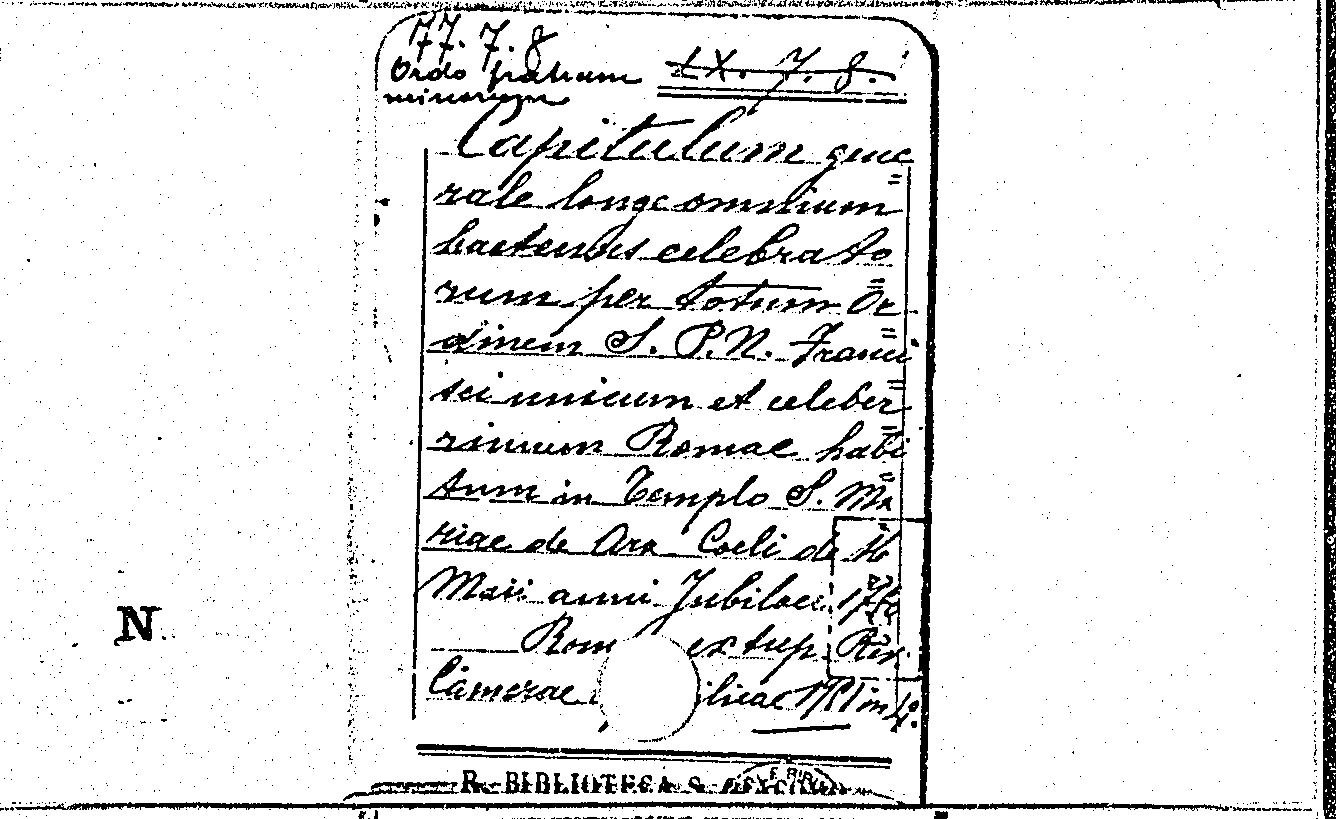 77. 7. 8
Ordo fratrum LX. 7. 8.
minorum
Capitulum gene
rale longe omnium
hactenus celebrato
rum per totum Or
dinem S. P. N. Franci
sci unicum et celeber
rimum Romae habi
tum in Templo S. Ma
riae de Ara Coeli die 16
Maii anni Jubilaei 1750
Rom ex typ. Rev.
Camerae 1751 in 4º.
R. BIBLIOTECA
N